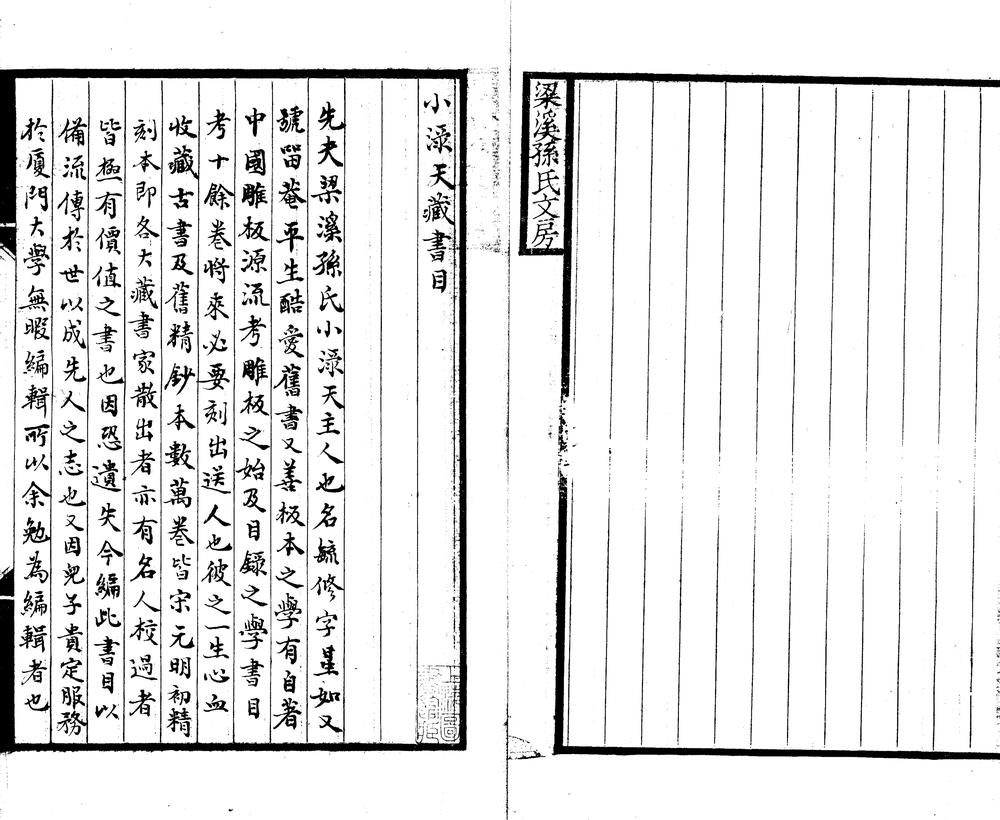 梁溪孫氏文房
小渌天藏書目
先夫梁溪孫氏小渌天主人也名毓修字星如又
號留菴平生酷愛舊書又善板本之學有自著
中國雕板源流考雕板之始及目錄之學書目
考十餘卷將來必要刻出送人也彼之一生心血
收藏古書及舊精鈔本數萬卷皆宋元明初精
刻本即各大藏書家散出者亦有名人校過者
皆極有價值之書也因恐遺失今編此書目以
備流傳於世以成先人之志也又因兒子貴定服務
於廈門大學無暇編輯所以余勉為編輯者也